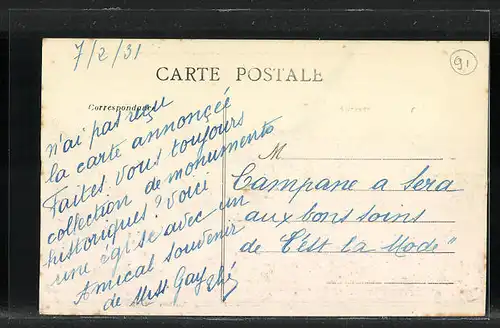 7/2/31
91
CARTE POSTALE
Correspondance
n'ai pas reçu
la carte annoncée
Faites vous toujours
collection de monuments
historiques? Voici
une église avec un
Amical souvenir
de Miss Gay
M
Campane a Sera
aux bons soins
de "C'est la Mode"